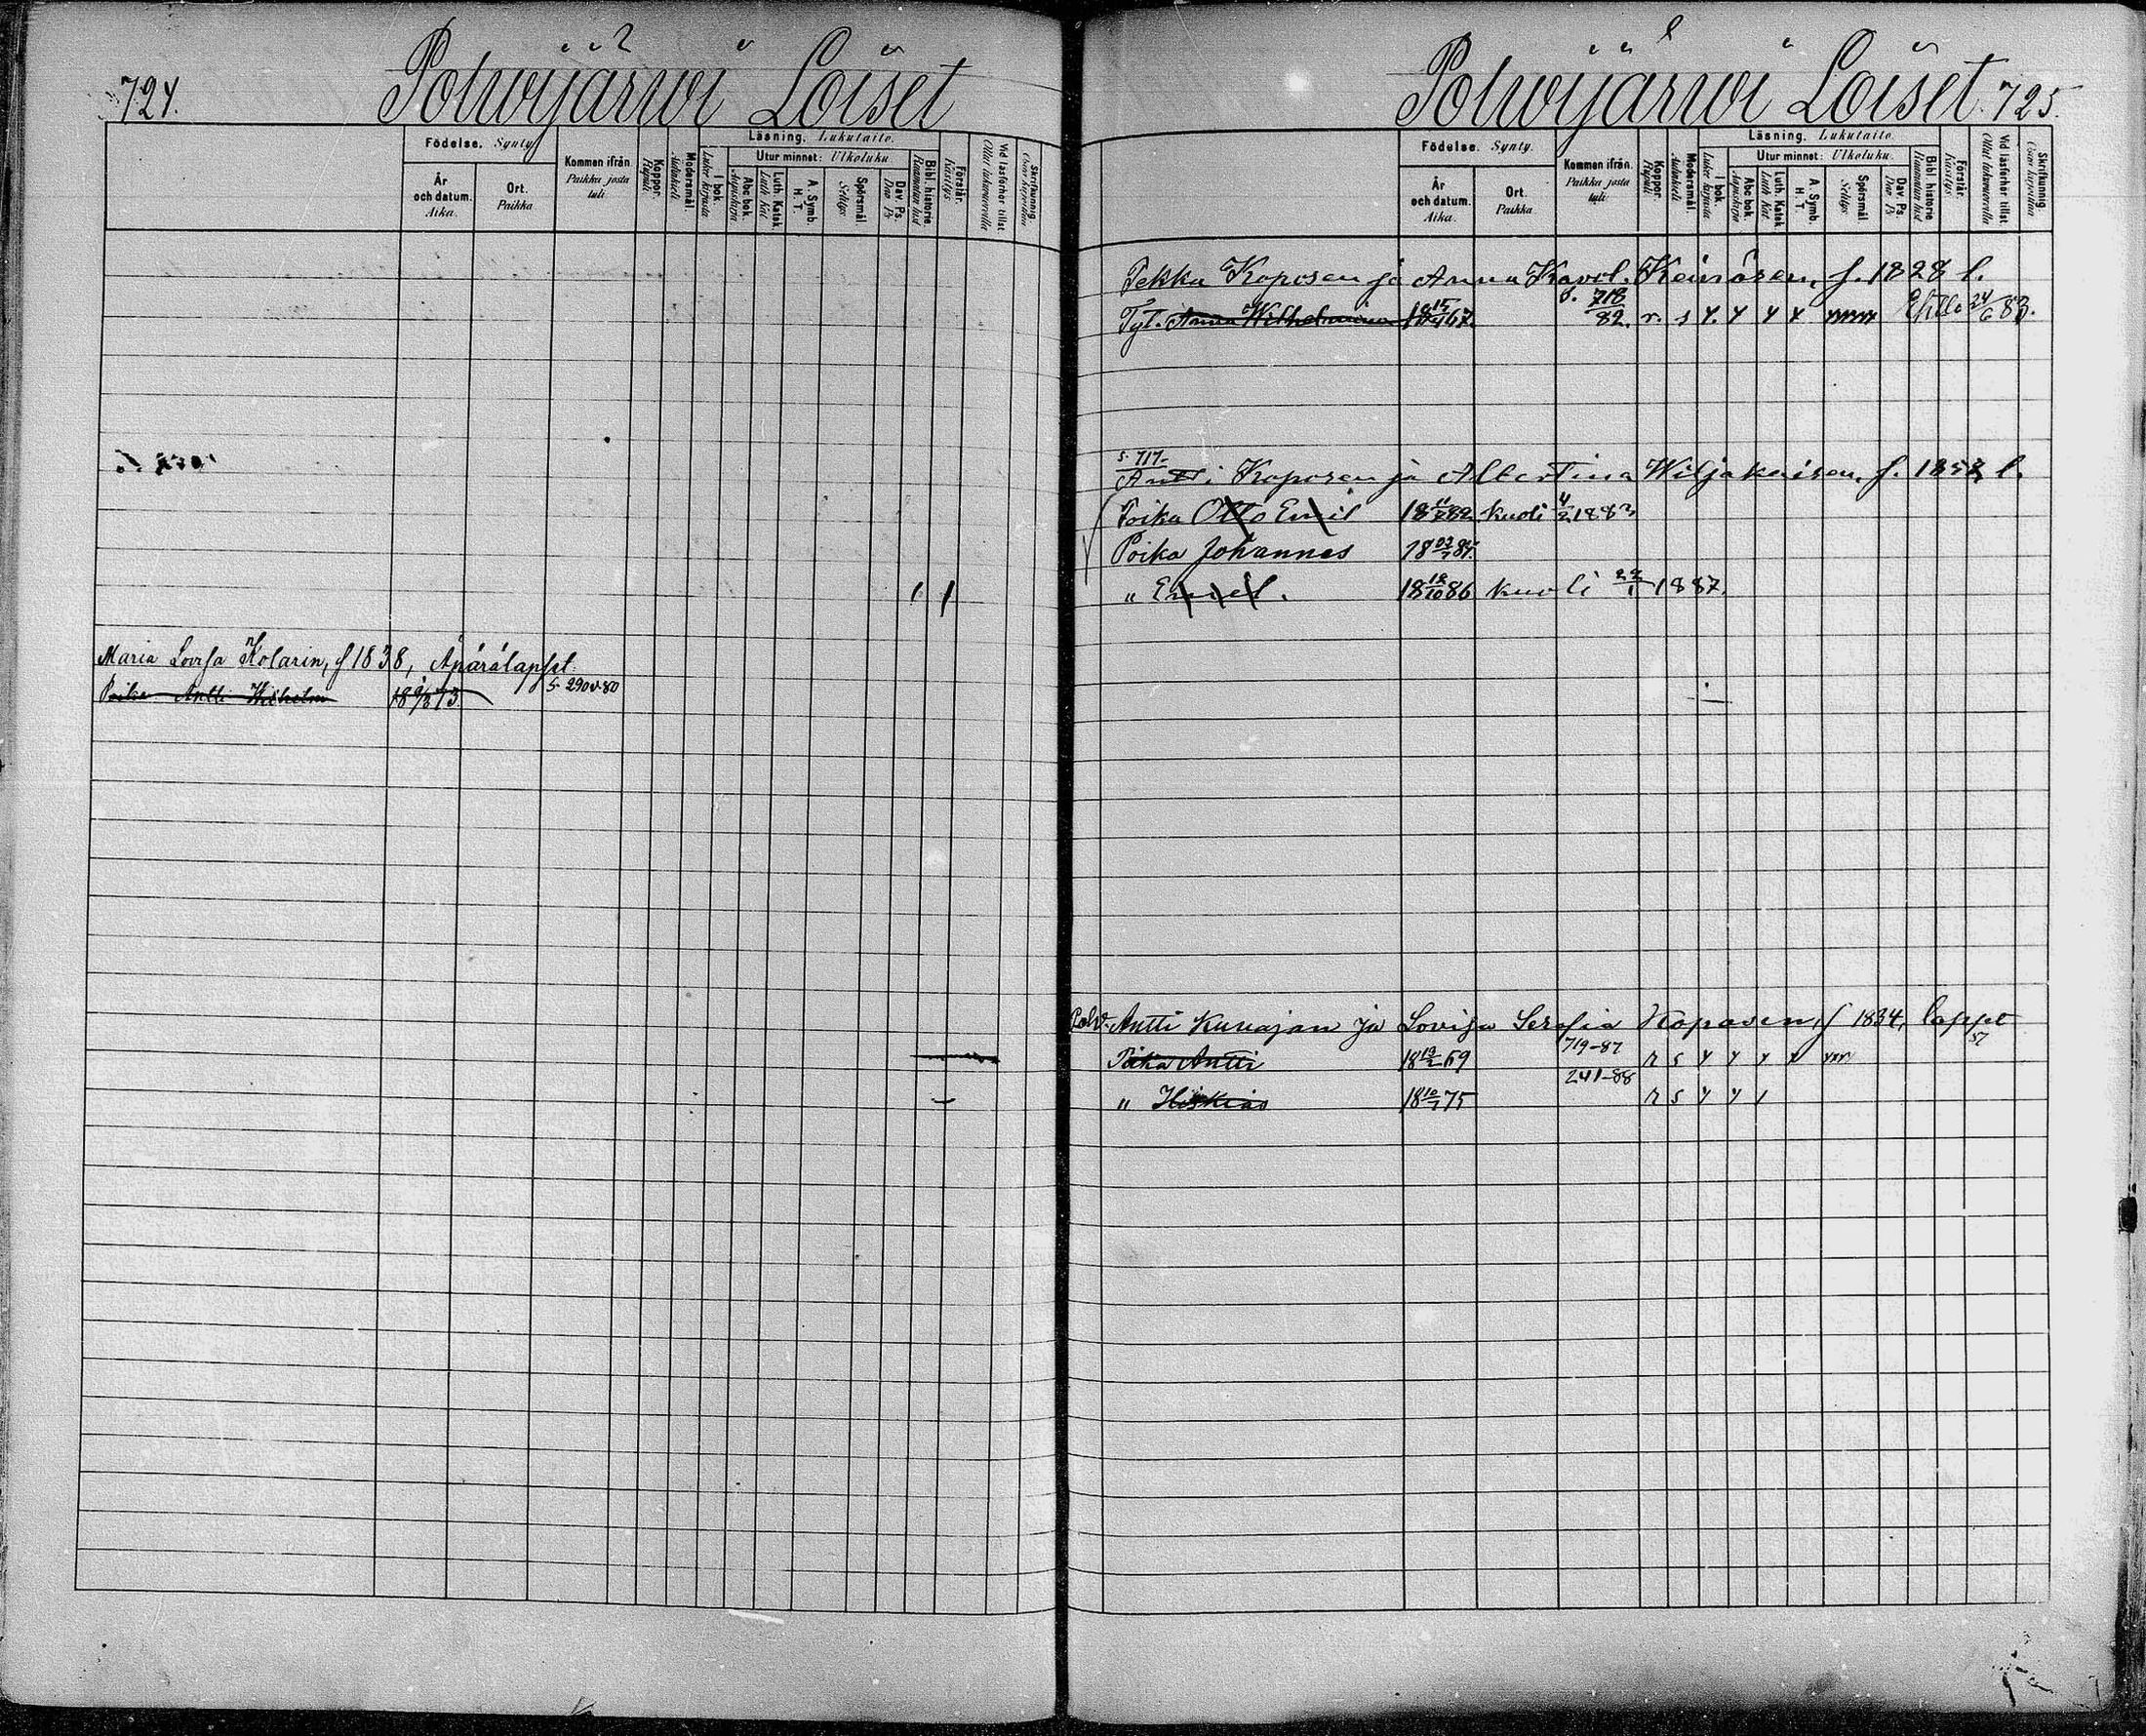 724.
Polwijärwi Loiset
Födelse. Synty
År och datum. Aika.
Ort. Paikka
Kommen ifrån. Paikka josta tuli.
Koppor. Rupuli
Modersmål. Äidinkieli
Läsning. Lukutaito.
I bok. Lukee kirjasta
Utur minnet: Ulkoluku
Abc bok. Aapiskirja
Luth. Katek. Luth Kat.
A. Symb. H. T.
Spörsmål. Selitys
Dav. Ps. Dav. Ps
Bibl. historie. Raamatun hist
Förstår. Käsitys.
Vid läsförhör tillst. Ollut lukuvuorolla
Skrifkunnig. Osaa kirjoittaa
Maria Lovisa Kolarin, f 1838, Äpärälapset.
Poika Antti Wilhelm 73 S. 290 v. 80
Polwijärwi Loiset. 725.
Födelse. Synty.
År och datum. Aika.
Ort. Paikka
Kommen ifrån. Paikka josta tuli.
Koppor. Rupuli
Modersmål. Äidinkieli
Läsning. Lukutaito.
I bok. Lukee kirjasta
Utur minnet: Ulkoluku.
Abc bok. Aapiskirja
Luth. Katek. Luth Kat.
A. Symb. H. T.
Spörsmål. Selitys
Dav. Ps. Dav. Ps
Bibl. historie Raamatun hist
Förstår. Käsitys
Vid läsförhör tillst. Ollut lukuvuorolla
Skrifkunnig. Osaa kirjoittaa
Pekka Koposen ja Anna Karol. Keinösen, f. 1828 l.
Tyt. Anna Wilhelmiina 18 15/4 67. S. 718/82. r. s 24/6 83.
S. 717.
Antti Koposen ja Albertina Wiljakaisen, f. 1858 l.
Poika Otto Emil 82 kuoli 4/2 1883
Poika Johannes 18
" Emil. 18 18/10 86 kuoli 22/1 1887.
Polv. Antti Kunajan ja Lovisa Serafia Koposen, f 1834, lapset
Poika Antti 18 69 719-87 r s 87
" Hiskias 18 75 241-88 r s